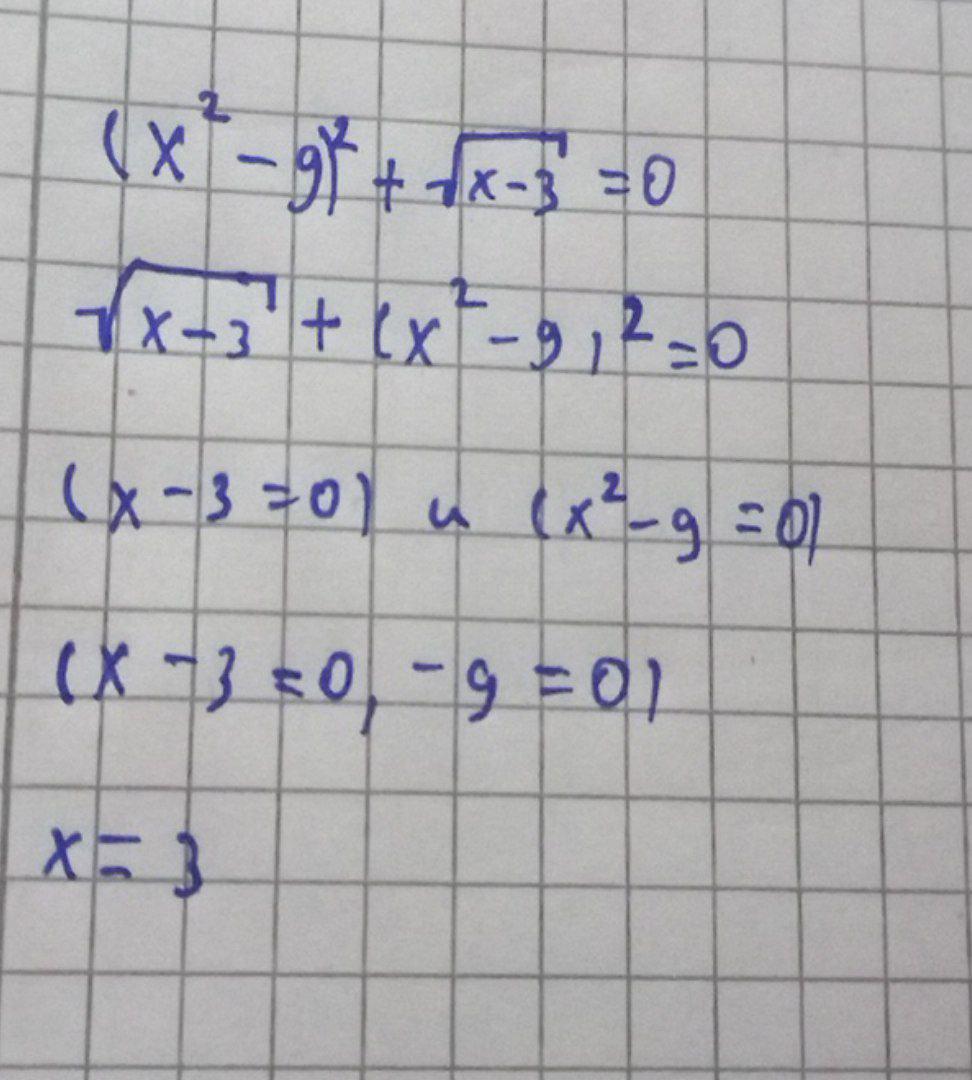 (x² - 9)² + √(x-3) = 0
√(x-3) + (x² - 9)² = 0
(x - 3 = 0) и (x² - 9 = 0)
(x - 3 = 0, - 9 = 0)
x = 3